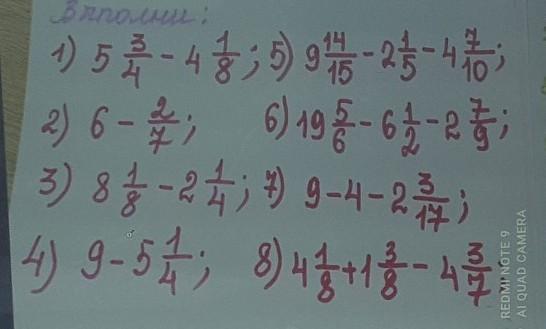 Выполни:
1) 5 3/4 - 4 1/8; 5) 9 14/15 - 2 1/5 - 4 7/10;
2) 6 - 2/7; 6) 19 5/6 - 6 1/2 - 2 7/9;
3) 8 1/8 - 2 1/4; 7) 9 - 4 - 2 3/17;
4) 9 - 5 1/4; 8) 4 1/8 + 1 3/8 - 4 3/7
REDMI NOTE 9
AI QUAD CAMERA